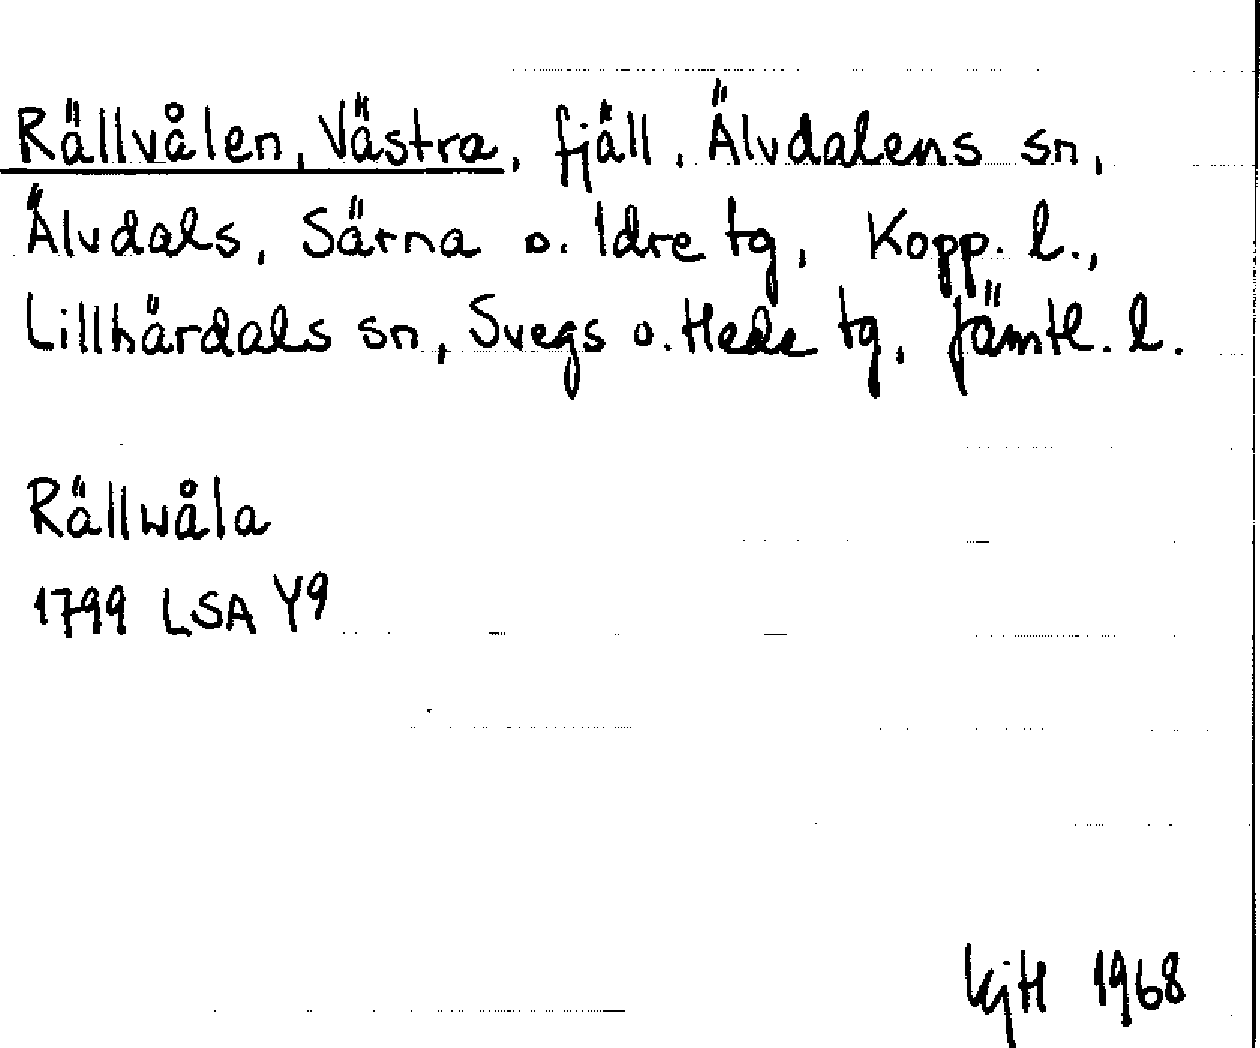 Rällvålen, Västra, fjäll, Älvdalens sn,
Älvdals, Särna o. Idre tg, Kopp. l.,
Lillhärdals sn, Svegs o. Hede tg, Jämtl. l.
Rällwåla
1799 LSA Y9
1968